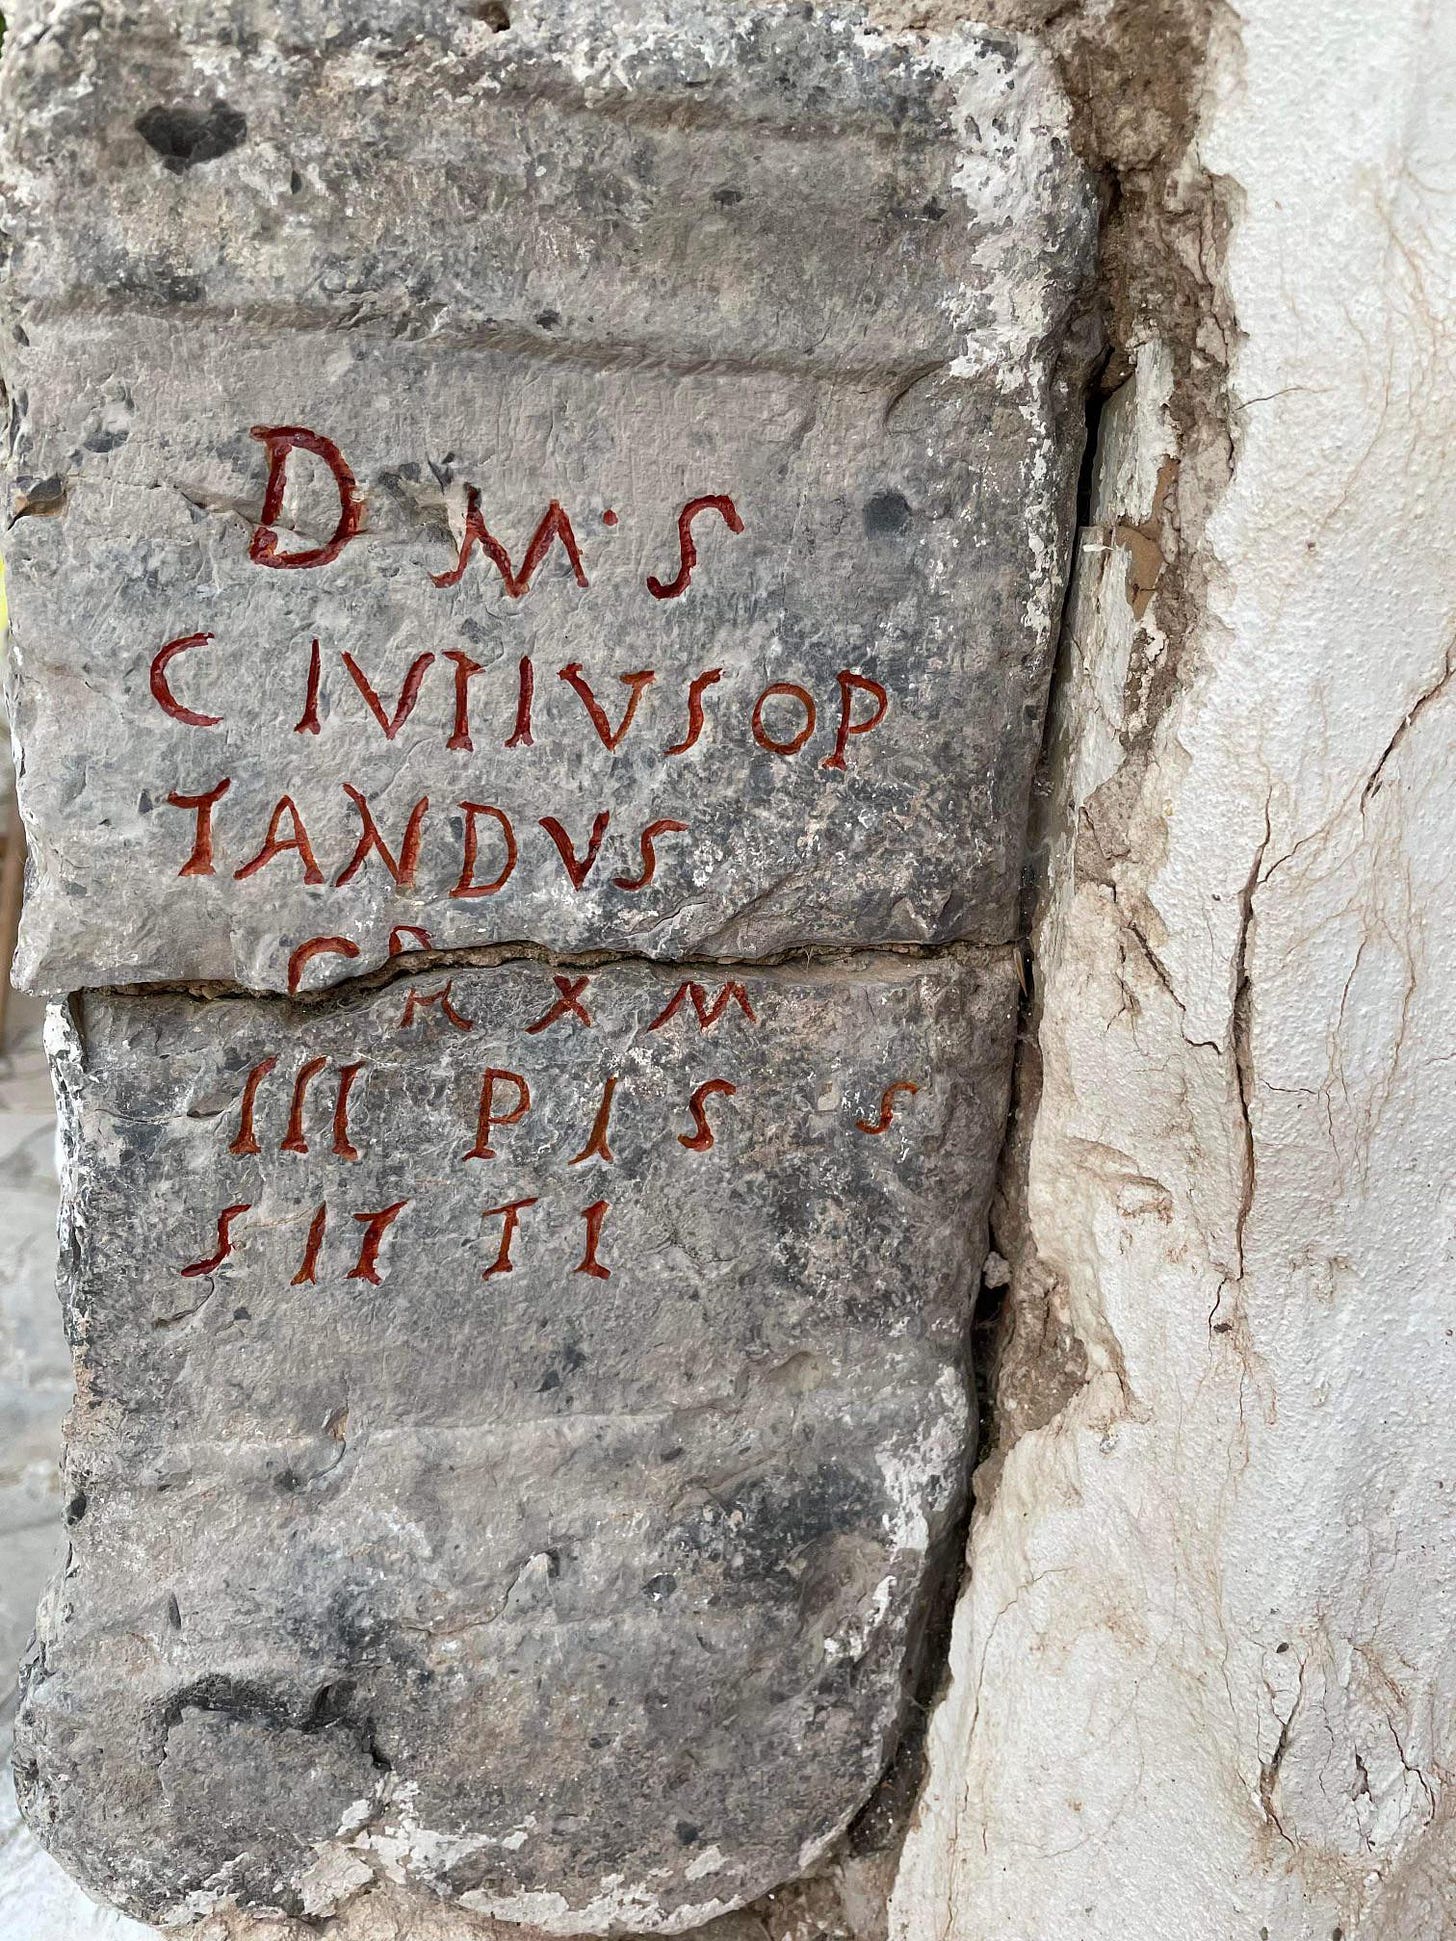 D M · S
C IVTIVSOP
TANDVS
C R X M
III P I S S
S IT T I